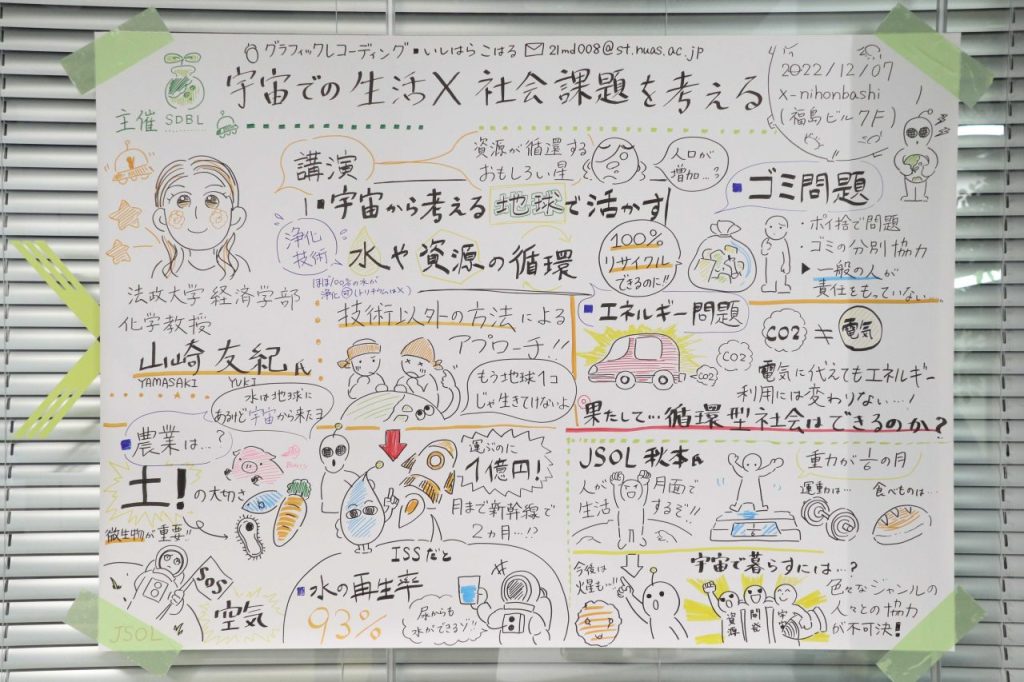 グラフィックレコーディング▪いしはらこはる ✉ 21md008@st.nuas.ac.jp
宇宙での生活×社会課題を考える
主催 SDBL
2022/12/07
x-nihonbashi
(福島ビル7F)
講演
資源が循環する
おもしろい星
人口が
増加…?
宇宙から考える地球で活かす
水や資源の循環
浄化
技術
ほぼ100%の水が
浄化可(トリチウムは×)
100%
リサイクル
できるのに!!
法政大学経済学部
化学教授
山崎友紀氏
YAMASAKI YUKI
技術以外の方法による
アプローチ!!
もう地球1コ
じゃ生きてけないよ
ゴミ問題
・ポイ捨て問題
・ゴミの分別協力
▶一般の人が
責任をもっていない…
エネルギー問題
CO2
CO2
CO2
電気
電気に代えてもエネルギー
利用には変わりない…!
果たして…循環型社会はできるのか?
水は地球に
あるけど宇宙から来たヨ
農業は…?
土!の大切さ
微生物が重要!!
運ぶのに
1億円!
月まで新幹線で
2ヵ月…!?
SOS
空気
JSOL
ISSだと
水の再生率
93%
尿からも
水ができるゾ!!
JSOL 秋本氏
人が月面で
生活するぞ!!
重力が1/6の月
運動は…
食べものは…
1/6
今後は
火星も…!!
宇宙で暮らすには…?
資源
開発
宇宙
色々なジャンルの
人々との協力
が不可決!